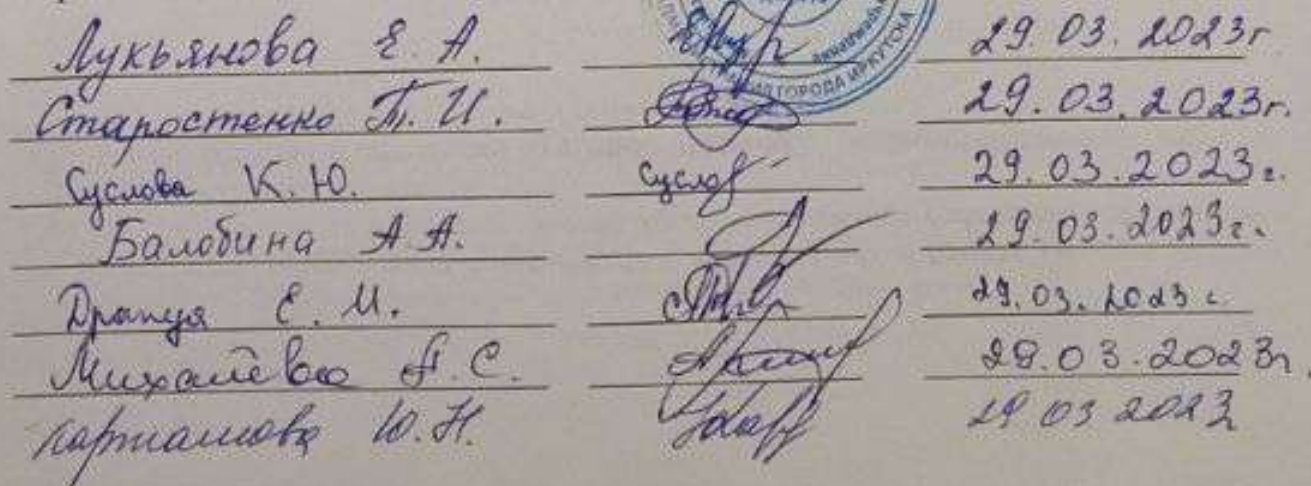 Лукьянова Е. А. 29. 03. 2023г
Старостенко Т. И. 29. 03. 2023г.
Суслова К. Ю. Суслов 29. 03. 2023г.
Балобина А А. 29. 03. 2023г.
Е. М. 29. 03. 2023г
Михалёва А. С. 29. 03. 2023г.
Карташова Ю. Н. 29 03 2023
ГОРОДА ИРКУТСКА